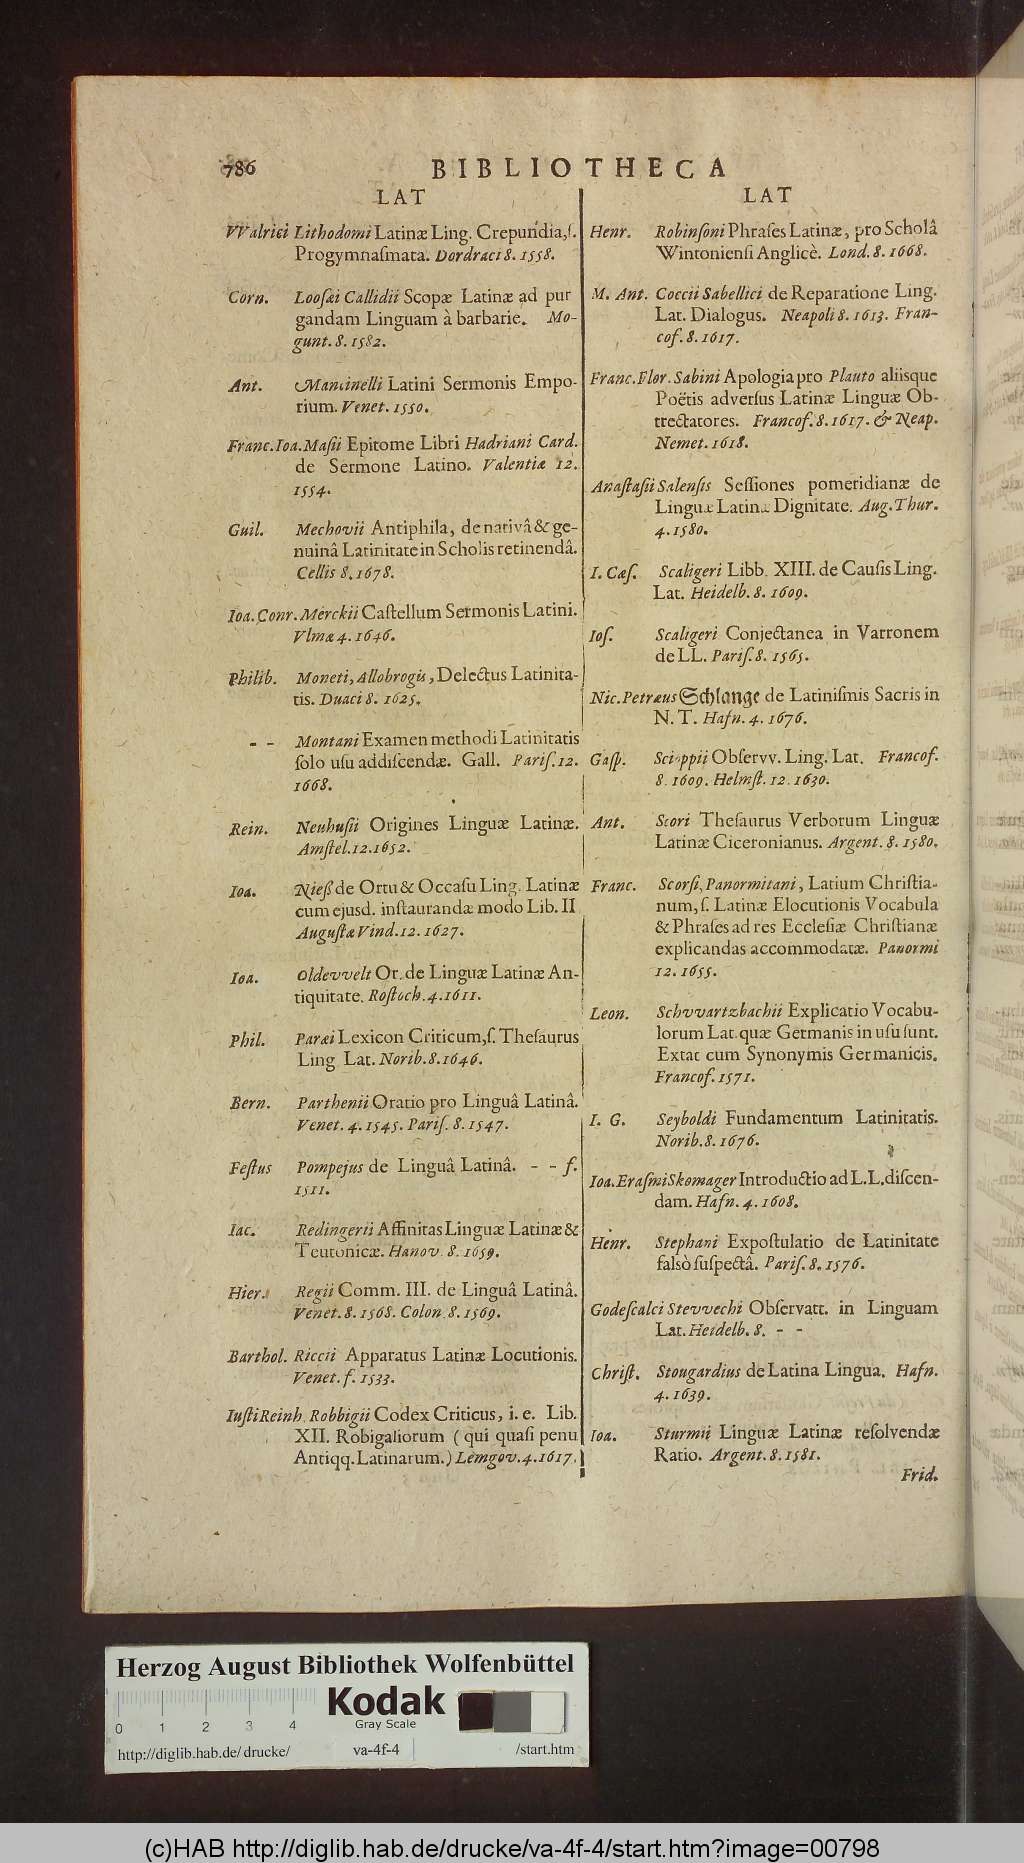 786 BIBLIOTHECA
LAT
VValrici Lithodomi Latinæ Ling. Crepundia, ſ.
Progymnaſmata. Dordraci 8. 1558.
Corn. Looſæi Callidii Scopæ Latinæ ad pur
gandam Linguam à barbarie. Mo-
gunt. 8. 1582.
Ant. Mancinelli Latini Sermonis Empo-
rium. Venet. 1550.
Franc. Ioa. Maſii Epitome Libri Hadriani Card.
de Sermone Latino. Valentiæ 12.
1554.
Guil. Mechovii Antiphila, de nativâ & ge-
nuinâ Latinitate in Scholis retinendâ.
Cellis 8. 1678.
Ioa. Conr. Merckii Caſtellum Sermonis Latini.
Vlmæ 4. 1646.
Philib. Moneti, Allobrogis, Delectus Latinita-
tis. Duaci 8. 1625.
- - Montani Examen methodi Latinitatis
ſolo uſu addiſcendæ. Gall. Pariſ. 12.
1668.
Rein. Neuhuſii Origines Linguæ Latinæ.
Amſtel. 12. 1652.
Ioa. Nieß de Ortu & Occaſu Ling. Latinæ
cum ejusd. inſtaurandæ modo Lib. II
Auguſtæ Vind. 12. 1627.
Ioa. Oldevvelt Or. de Linguæ Latinæ An-
tiquitate. Roſtoch. 4. 1611.
Phil. Paræi Lexicon Criticum, ſ. Theſaurus
Ling Lat. Norib. 8. 1646.
Bern. Parthenii Oratio pro Linguâ Latinâ.
Venet. 4. 1545. Pariſ. 8. 1547.
Feſtus Pompejus de Linguâ Latinâ. - - f.
1511.
Iac. Redingerii Affinitas Linguæ Latinæ &
Teutonicæ. Hanov. 8. 1659.
Hier. Regii Comm. III. de Linguâ Latinâ.
Venet. 8. 1568. Colon. 8. 1569.
Barthol. Riccii Apparatus Latinæ Locutionis.
Venet. f. 1533.
Iuſti Reinh. Robbigii Codex Criticus, i. e. Lib.
XII. Robigaliorum (qui quaſi penu
Antiqq. Latinarum.) Lemgov. 4. 1617.
LAT
Henr. Robinſoni Phraſes Latinæ, pro Scholâ
Wintonienſi Anglicè. Lond. 8. 1668.
M. Ant. Coccii Sabellici de Reparatione Ling.
Lat. Dialogus. Neapoli 8. 1613. Fran-
cof. 8. 1617.
Franc. Flor. Sabini Apologia pro Plauto aliisque
Poëtis adverſus Latinæ Linguæ Ob-
trectatores. Francof. 8. 1617. & Neap.
Nemet. 1618.
Anaſtaſii Salenſis Seſſiones pomeridianæ de
Linguæ Latinæ Dignitate. Aug. Thur.
4. 1580.
I. Cæſ. Scaligeri Libb. XIII. de Cauſis Ling.
Lat. Heidelb. 8. 1609.
Ioſ. Scaligeri Conjectanea in Varronem
de LL. Pariſ. 8. 1565.
Nic. Petræus Schlange de Latiniſmis Sacris in
N. T. Hafn. 4. 1676.
Gaſp. Scioppii Obſervv. Ling. Lat. Francof.
8. 1609. Helmſt. 12. 1630.
Ant. Scori Theſaurus Verborum Linguæ
Latinæ Ciceronianus. Argent. 8. 1580.
Franc. Scorſi, Panormitani, Latium Chriſtia-
num, ſ. Latinæ Elocutionis Vocabula
& Phraſes ad res Eccleſiæ Chriſtianæ
explicandas accommodatæ. Panormi
12. 1655.
Leon. Schvvartzbachii Explicatio Vocabu-
lorum Lat. quæ Germanis in uſu ſunt.
Extat cum Synonymis Germanicis.
Francof. 1571.
I. G. Seyboldi Fundamentum Latinitatis.
Norib. 8. 1676.
Ioa. Eraſmi Skomager Introductio ad L. L. diſcen-
dam. Hafn. 4. 1608.
Henr. Stephani Expoſtulatio de Latinitate
falsò ſuſpectâ. Pariſ. 8. 1576.
Godeſcalci Stevvechi Obſervatt. in Linguam
Lat. Heidelb. 8. - -
Chriſt. Stougardius de Latina Lingua. Hafn.
4. 1639.
Ioa. Sturmii Linguæ Latinæ reſolvendæ
Ratio. Argent. 8. 1581.
Frid.
Herzog August Bibliothek Wolfenbüttel
Kodak
Gray Scale
0 1 2 3 4
http://diglib.hab.de/drucke/ va-4f-4 /start.htm
(c)HAB http://diglib.hab.de/drucke/va-4f-4/start.htm?image=00798